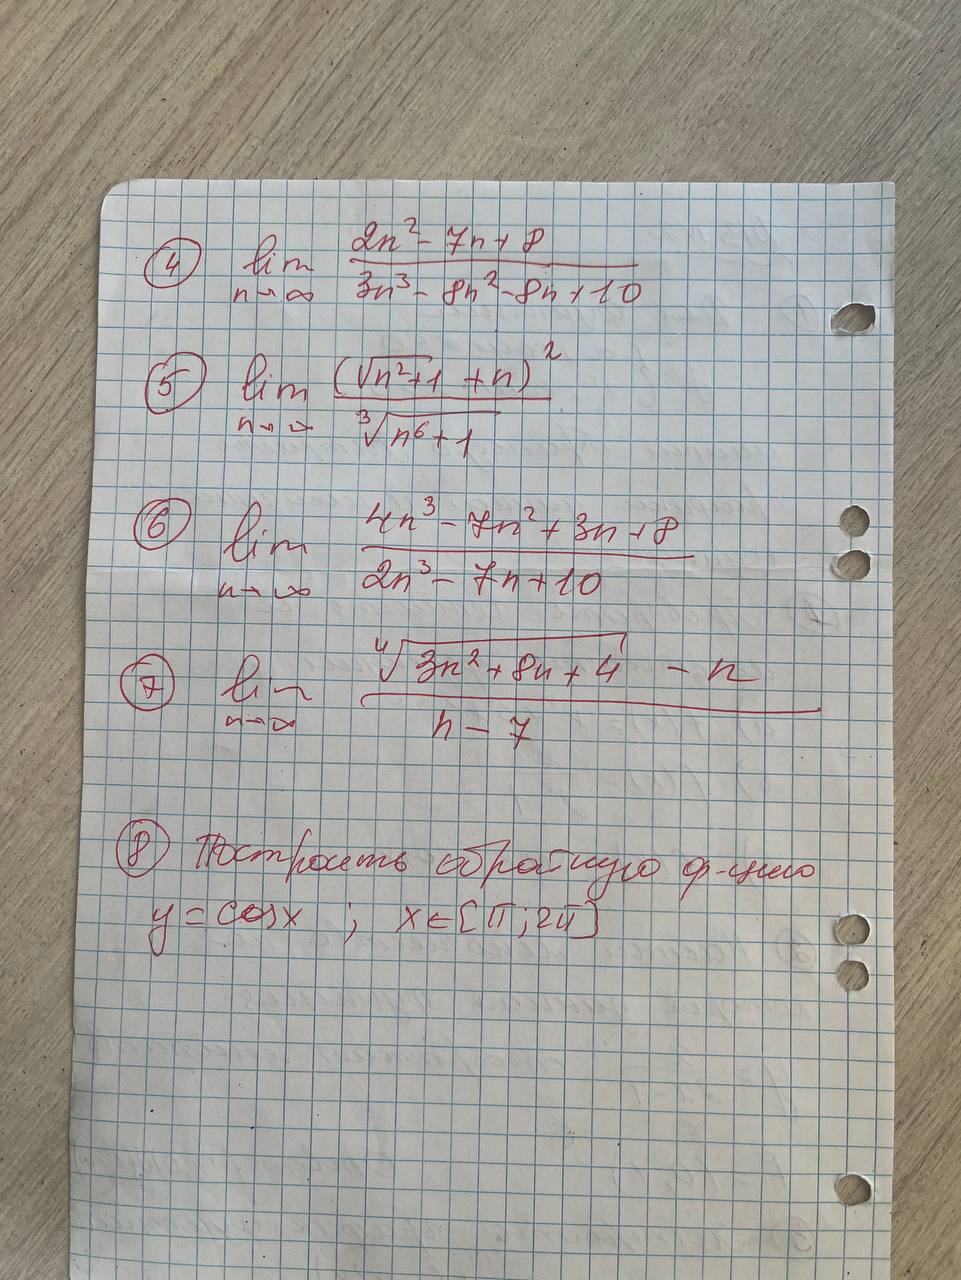 ④ lim n→∞ (2n² - 7n + 8) / (3n³ - 8n² - 8n + 10)
⑤ lim n→∞ (√(n²+1) + n)² / ∛(n⁶+1)
⑥ lim n→∞ (4n³ - 7n² + 3n + 8) / (2n³ - 7n + 10)
⑦ lim n→∞ (∜(3n² + 8n + 4) - n) / (n - 7)
⑧ Построить обратную ф-цию
y = cosx ; x ∈ [π; 2π]